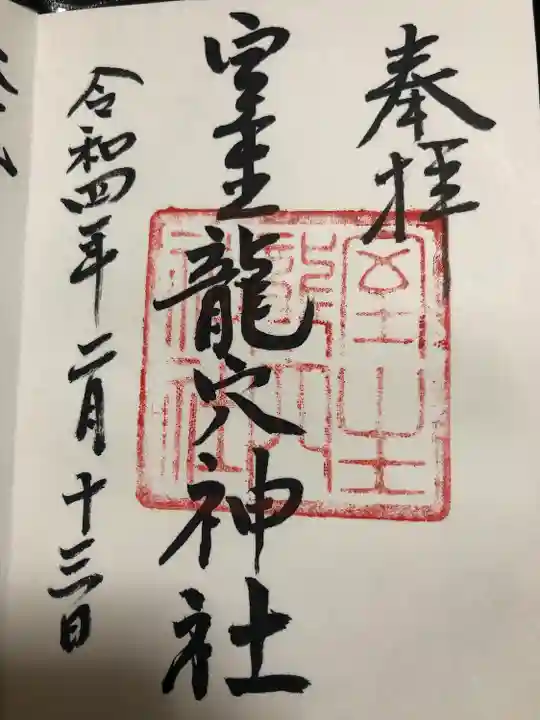 奉拝
室生龍穴神社
令和四年二月十三日
室生龍穴神社